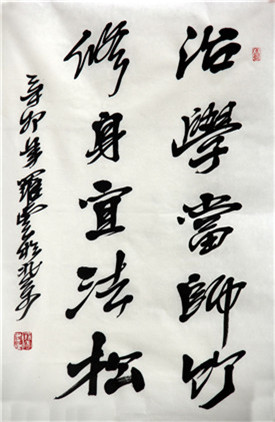 治學當師竹
修身宜法松
辛卯年羅雲